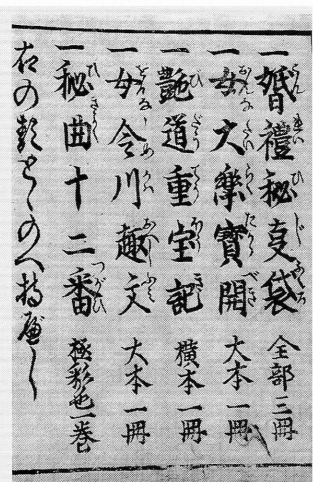 一婚禮秘叓袋 全部三冊
一女大樂寶開 大本一冊
一艶道重宝記 横本一冊
一女令川趣文 大本一冊
一秘曲十二番 極彩色一巻
右の類とゝのへ